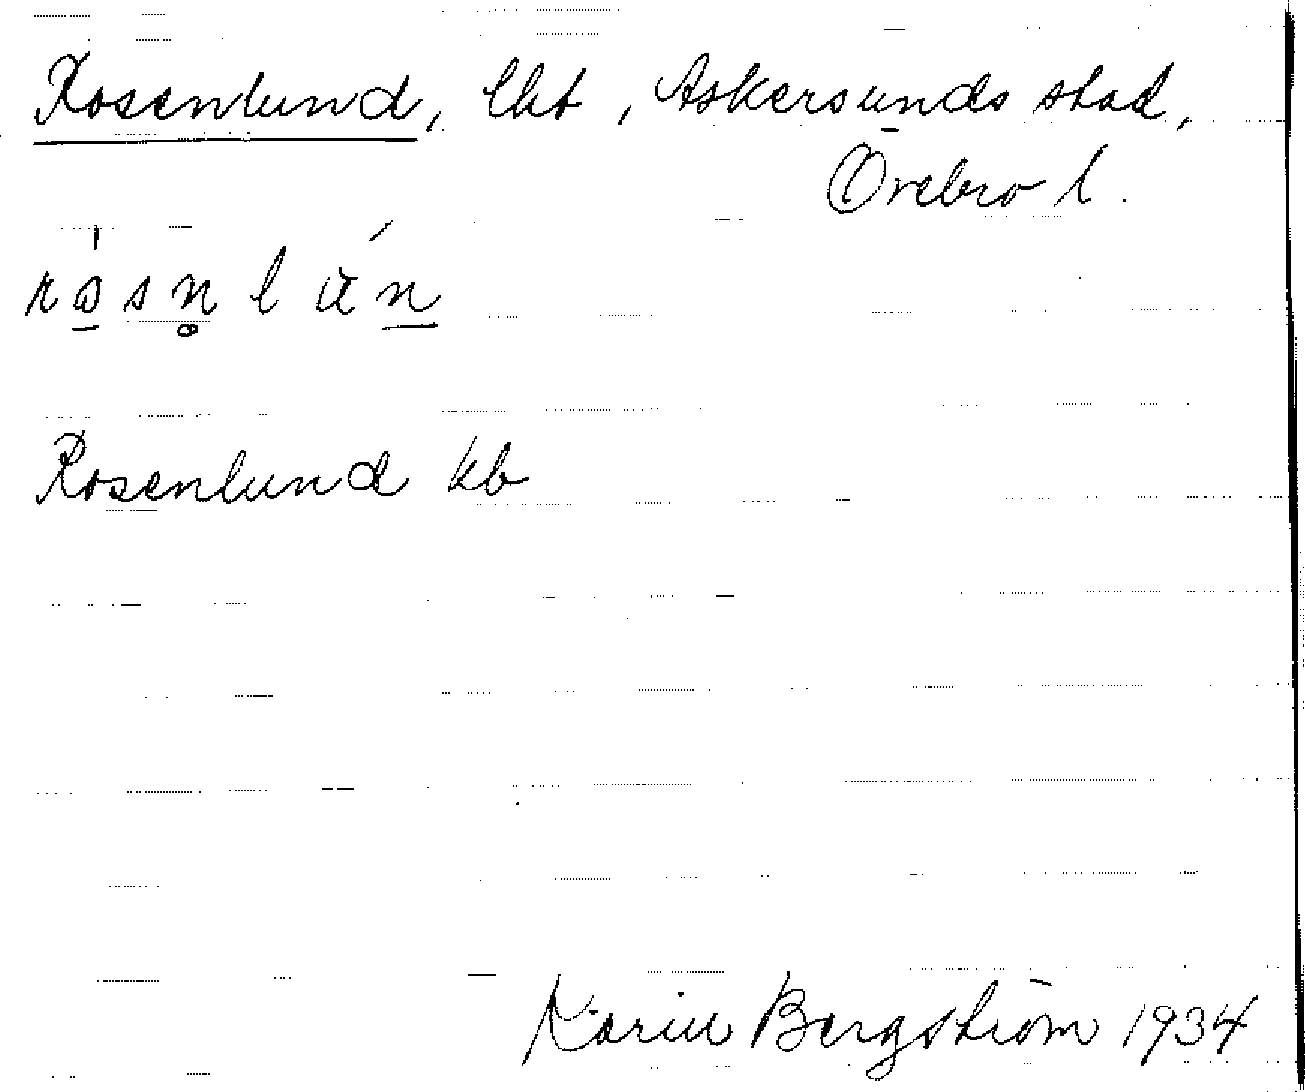 Rosenlund, lht, Askersunds stad,
Örebro l.
Rosenlund kb
Karin Bergström 1934